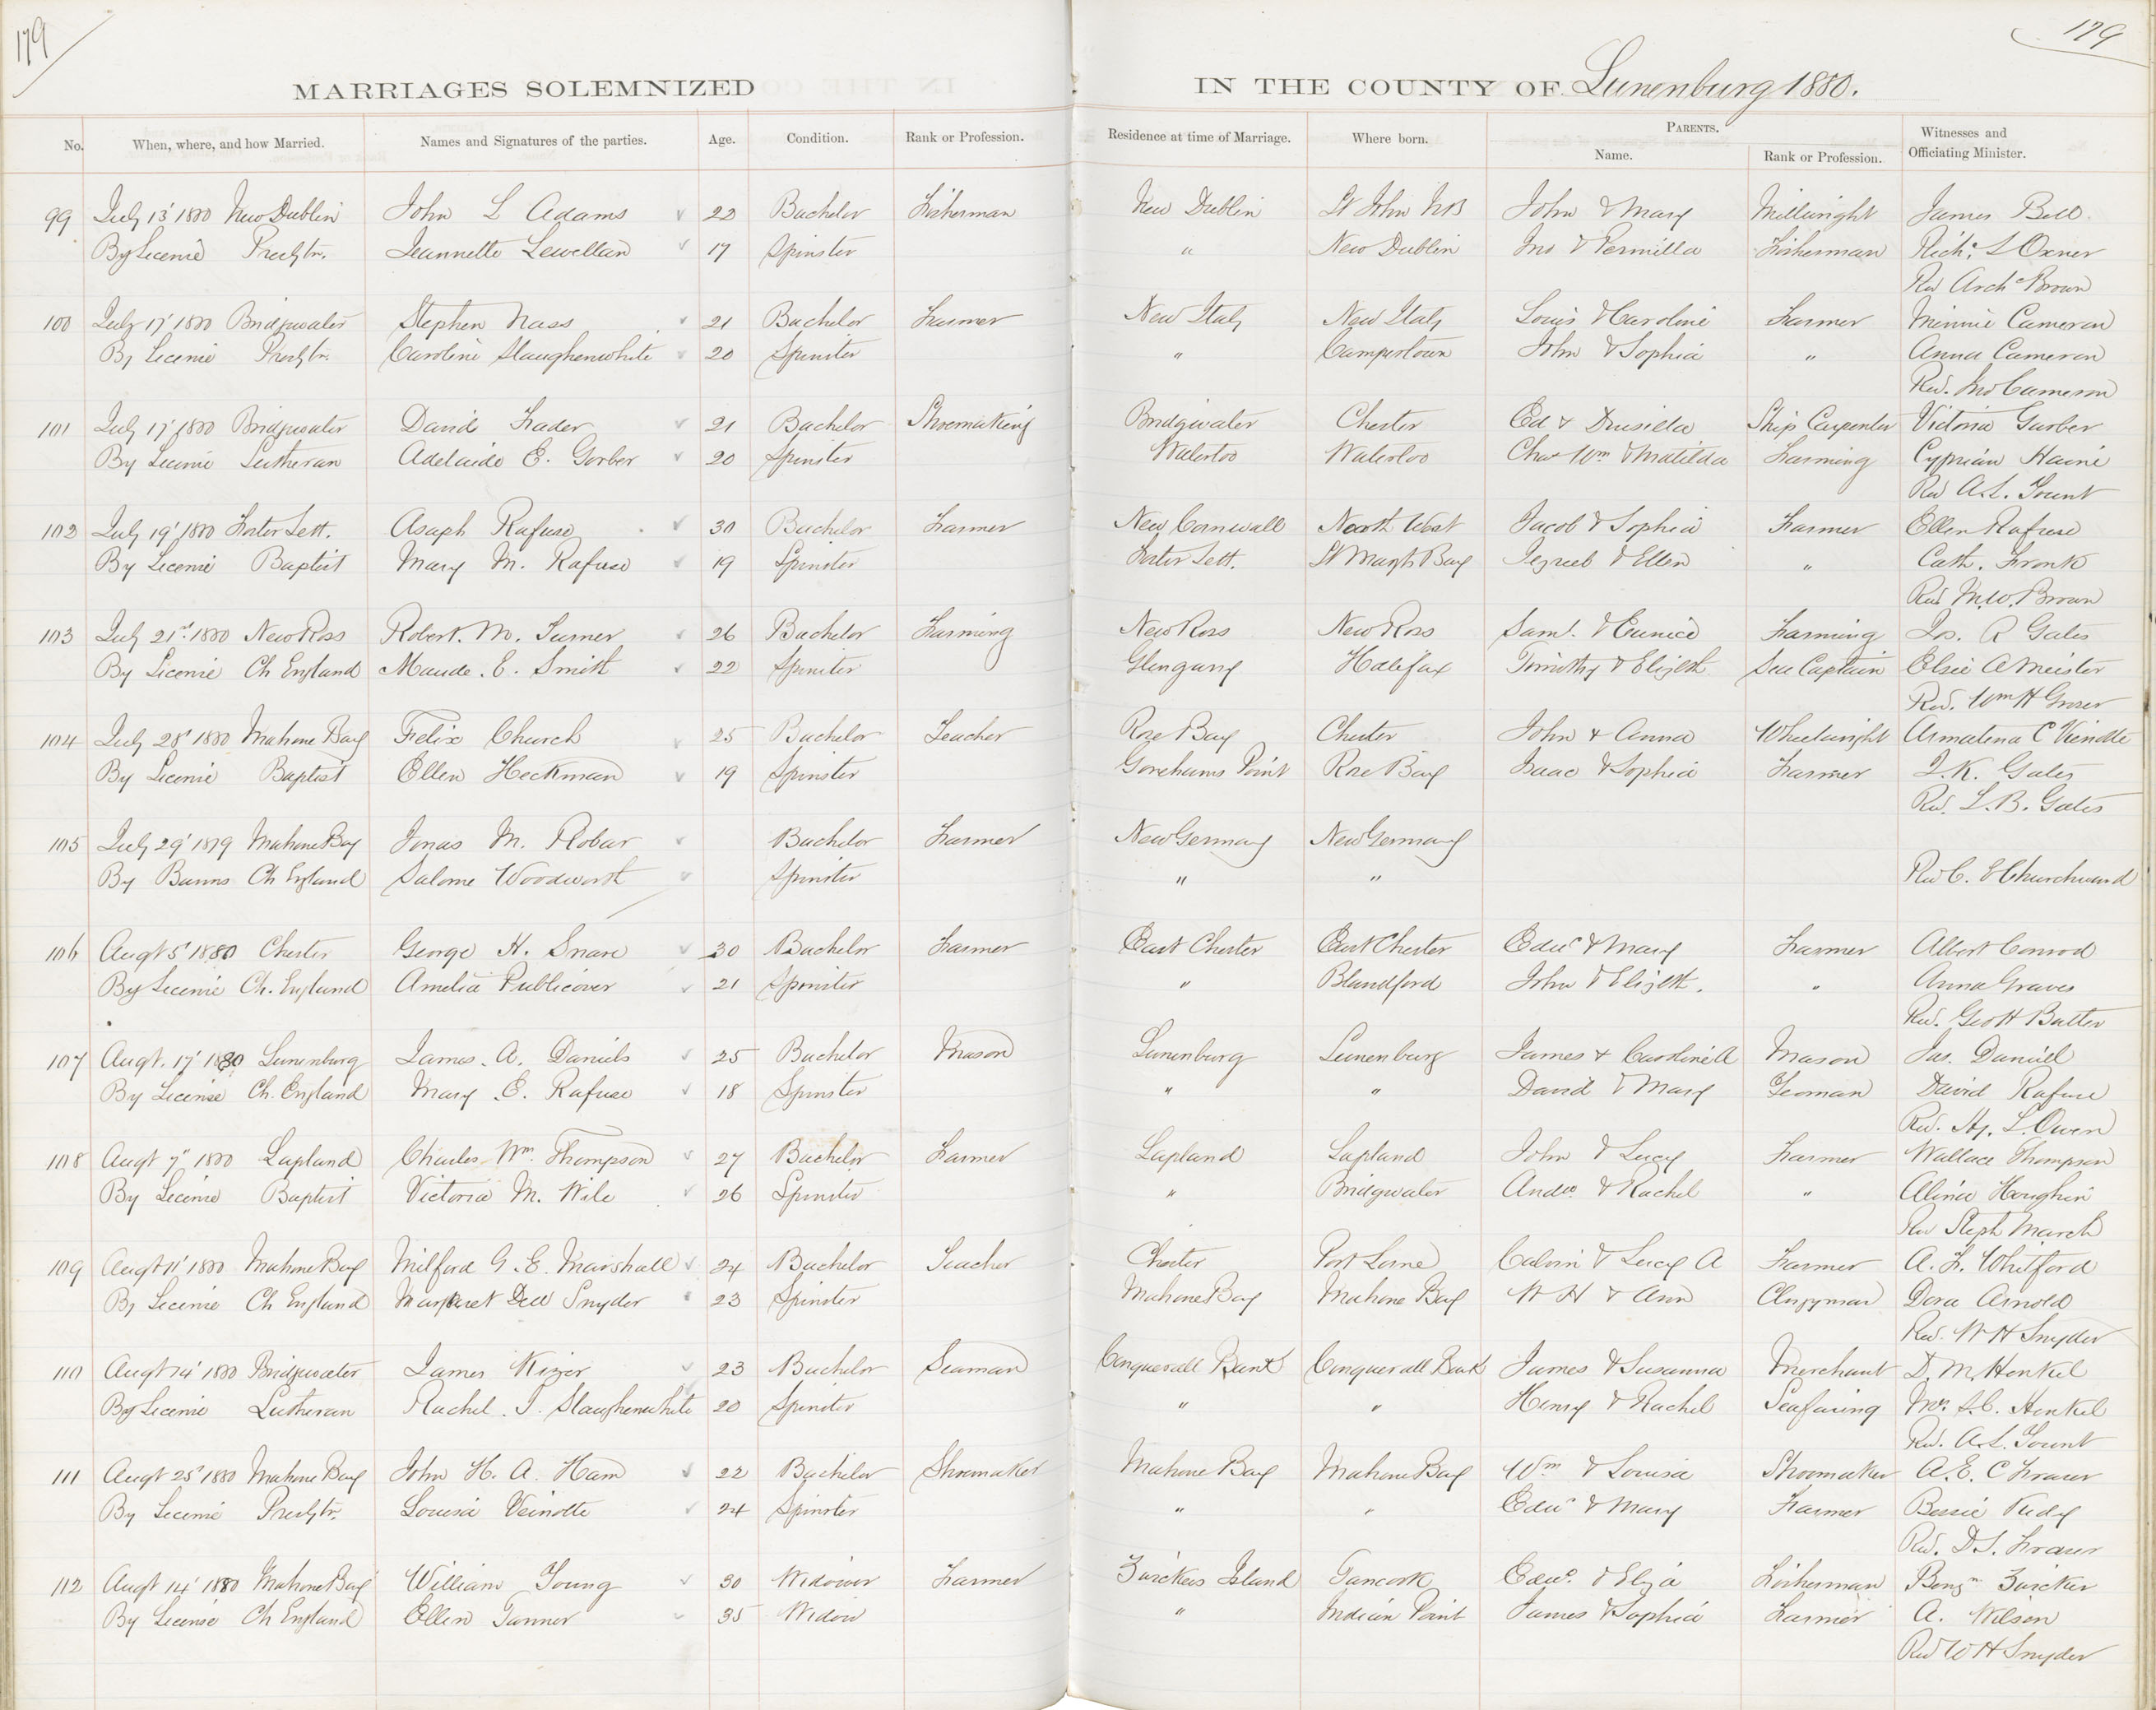 179
179
MARRIAGES SOLEMNIZED IN THE COUNTY OF Lunenburg 1880.
No. When, where, and how Married. Names and Signatures of the parties. Age. Condition. Rank or Profession. Residence at time of Marriage. Where born. PARENTS. Name. Rank or Profession. Witnesses and Officiating Minister.
99 July 13' 1880 New Dublin John L Adams 22 Bachelor Fisherman New Dublin St John NB John & Mary Millwright James Bell
By License Presbytn. Jeannette Lewellan 17 Spinster " New Dublin Jno & Permilla Fisherman Richd. L Oxner
Rev Archd Brown
100 July 17' 1880 Bridgewater Stephen Nass 21 Bachelor Farmer New Italy New Italy Louis & Caroline Farmer Minnie Cameron
By License Presbytn. Caroline Slaughenwhite 20 Spinster " Camperdown John & Sophia " Anna Cameron
Rev. Jno Cameron
101 July 17' 1880 Bridgewater David Frader 21 Bachelor Shoemaking Bridgwater Chester Ed & Drusilla Ship Carpenter Victoria Garber
By License Lutheran Adelaide E. Gerber 20 Spinster Waterloo Waterloo Chas Wm & Matilda Farming Cyprian Haine
Rev A.L. Yount
102 July 19' 1880 Foster Sett. Asaph Rafuse 30 Bachelor Farmer New Cornwall North West Jacob & Sophia Farmer Ellen Rafuse
By License Baptist Mary M. Rafuse 19 Spinster Foster Sett. St Margts Bay Jezreel & Ellen " Cath. Fronk
Rev M.W. Brown
103 July 21st. 1880 New Ross Robert. M. Turner 26 Bachelor Farming New Ross New Ross Saml. & Eunice Farming Jos. R Gates
By License Ch England Maude. E. Smith 22 Spinster Glengarry Halifax Timothy & Elizbth Sea Captain Elsie A Meister
Rev. Wm H Groser
104 July 28' 1880 Mahone Bay Felix Church 25 Bachelor Teacher Rose Bay Chester John & Anna Wheelwright Armatena C Vienotte
By License Baptist Ellen Heckman 19 Spinster Gorehams Point Rose Bay Isaac & Sophia Farmer I.K. Gates
Rev. L.B. Gates
105 July 29' 1879 Mahone Bay Jonas M. Robar Bachelor Farmer New Germany New Germany
By Banns Ch England Salome Woodworth Spinster " " Rev C. E Churchward
106 Augt 5' 1880 Chester George H. Snare 30 Bachelor Farmer East Chester East Chester Edwd & Mary Farmer Albert Conrod
By License Ch. England Amelia Publicover 21 Spinster " Blandford John & Elizbth. " Anna Graves
Rev. Geo H Butler
107 Augt. 17' 1880 Lunenburg James. A. Daniels 25 Bachelor Mason Lunenburg Lunenburg James & Caroline A Mason Jas. Daniell
By License Ch. England Mary. E. Rafuse 18 Spinster " " David & Mary Yeoman David Rafuse
Rev. Hy. L. Owen
108 Augt 7" 1880 Lapland Charles Wm. Thompson 27 Bachelor Farmer Lapland Lapland John & Lucy Farmer Wallace Thompson
By License Baptist Victoria M. Wile 26 Spinster " Bridgwater Andw. & Rachel " Alina Houghin
Rev Steph March
109 Augt 11' 1880 Mahone Bay Milford G. E. Marshall 24 Bachelor Teacher Chester Port Lorne Calvin & Lucy A Farmer A. F. Whitford
By License Ch England Margaret Dell Snyder 23 Spinster Mahone Bay Mahone Bay W H & Ann Clergyman Dora Arnold
Rev. W H Snyder
110 Augt 14' 1880 Bridgwater James Kizer 23 Bachelor Seaman Conquerall Bank Conquerall Bank James & Susanna Merchant D. M Henkel
By License Lutheran Rachel. J. Slaughenwhite 20 Spinster " " Henry & Rachel Seafaring Mrs. S.C. Henkel
Rev. A.L. Yount
111 Augt 25' 1880 Mahone Bay John H. A. Ham 22 Bachelor Shoemaker Mahone Bay Mahone Bay Wm & Louisa Shoemaker A.E. C Fraser
By License Presbytn. Louisa Veinotte 24 Spinster " " Edwd & Mary Farmer Bessie Rudy
Rev. D.S. Fraser
112 Augt 14' 1880 Mahone Bay William Young 30 Widower Farmer Zwickers Island Tancook Edwd. & Eliza Fisherman Benjn Zwicker
By License Ch England Ellen Tanner 35 Widow " Indian Point James & Sophia Farmer A. Wilson
Rev W H Snyder